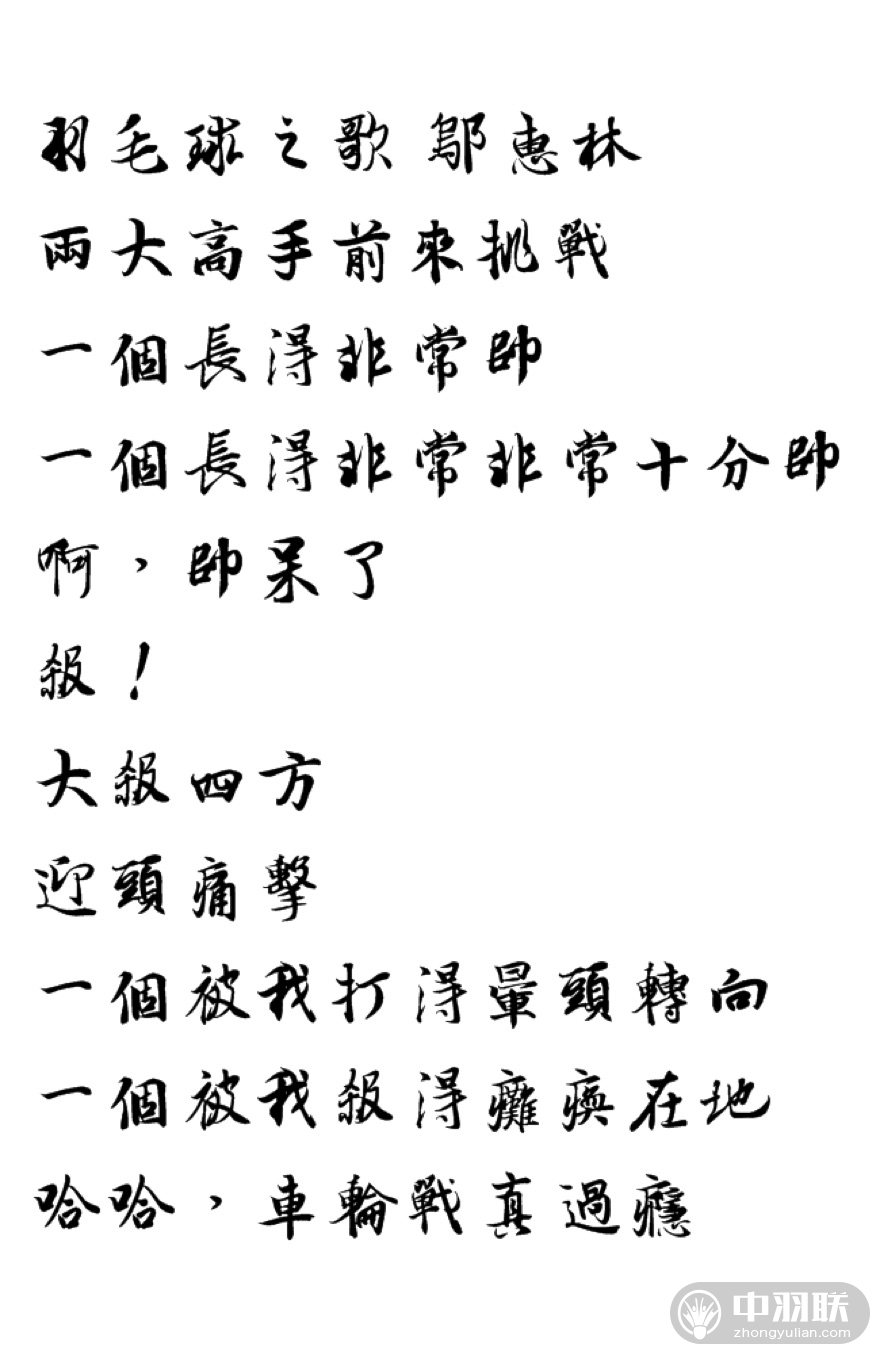 羽毛球之歌 鄔惠林
兩大高手前來挑戰
一個長得非常帥
一個長得非常非常十分帥
啊，帥呆了
殺！
大殺四方
迎頭痛擊
一個被我打得暈頭轉向
一個被我殺得癱瘓在地
哈哈，車輪戰真過癮
中羽联
zhongyulian.com